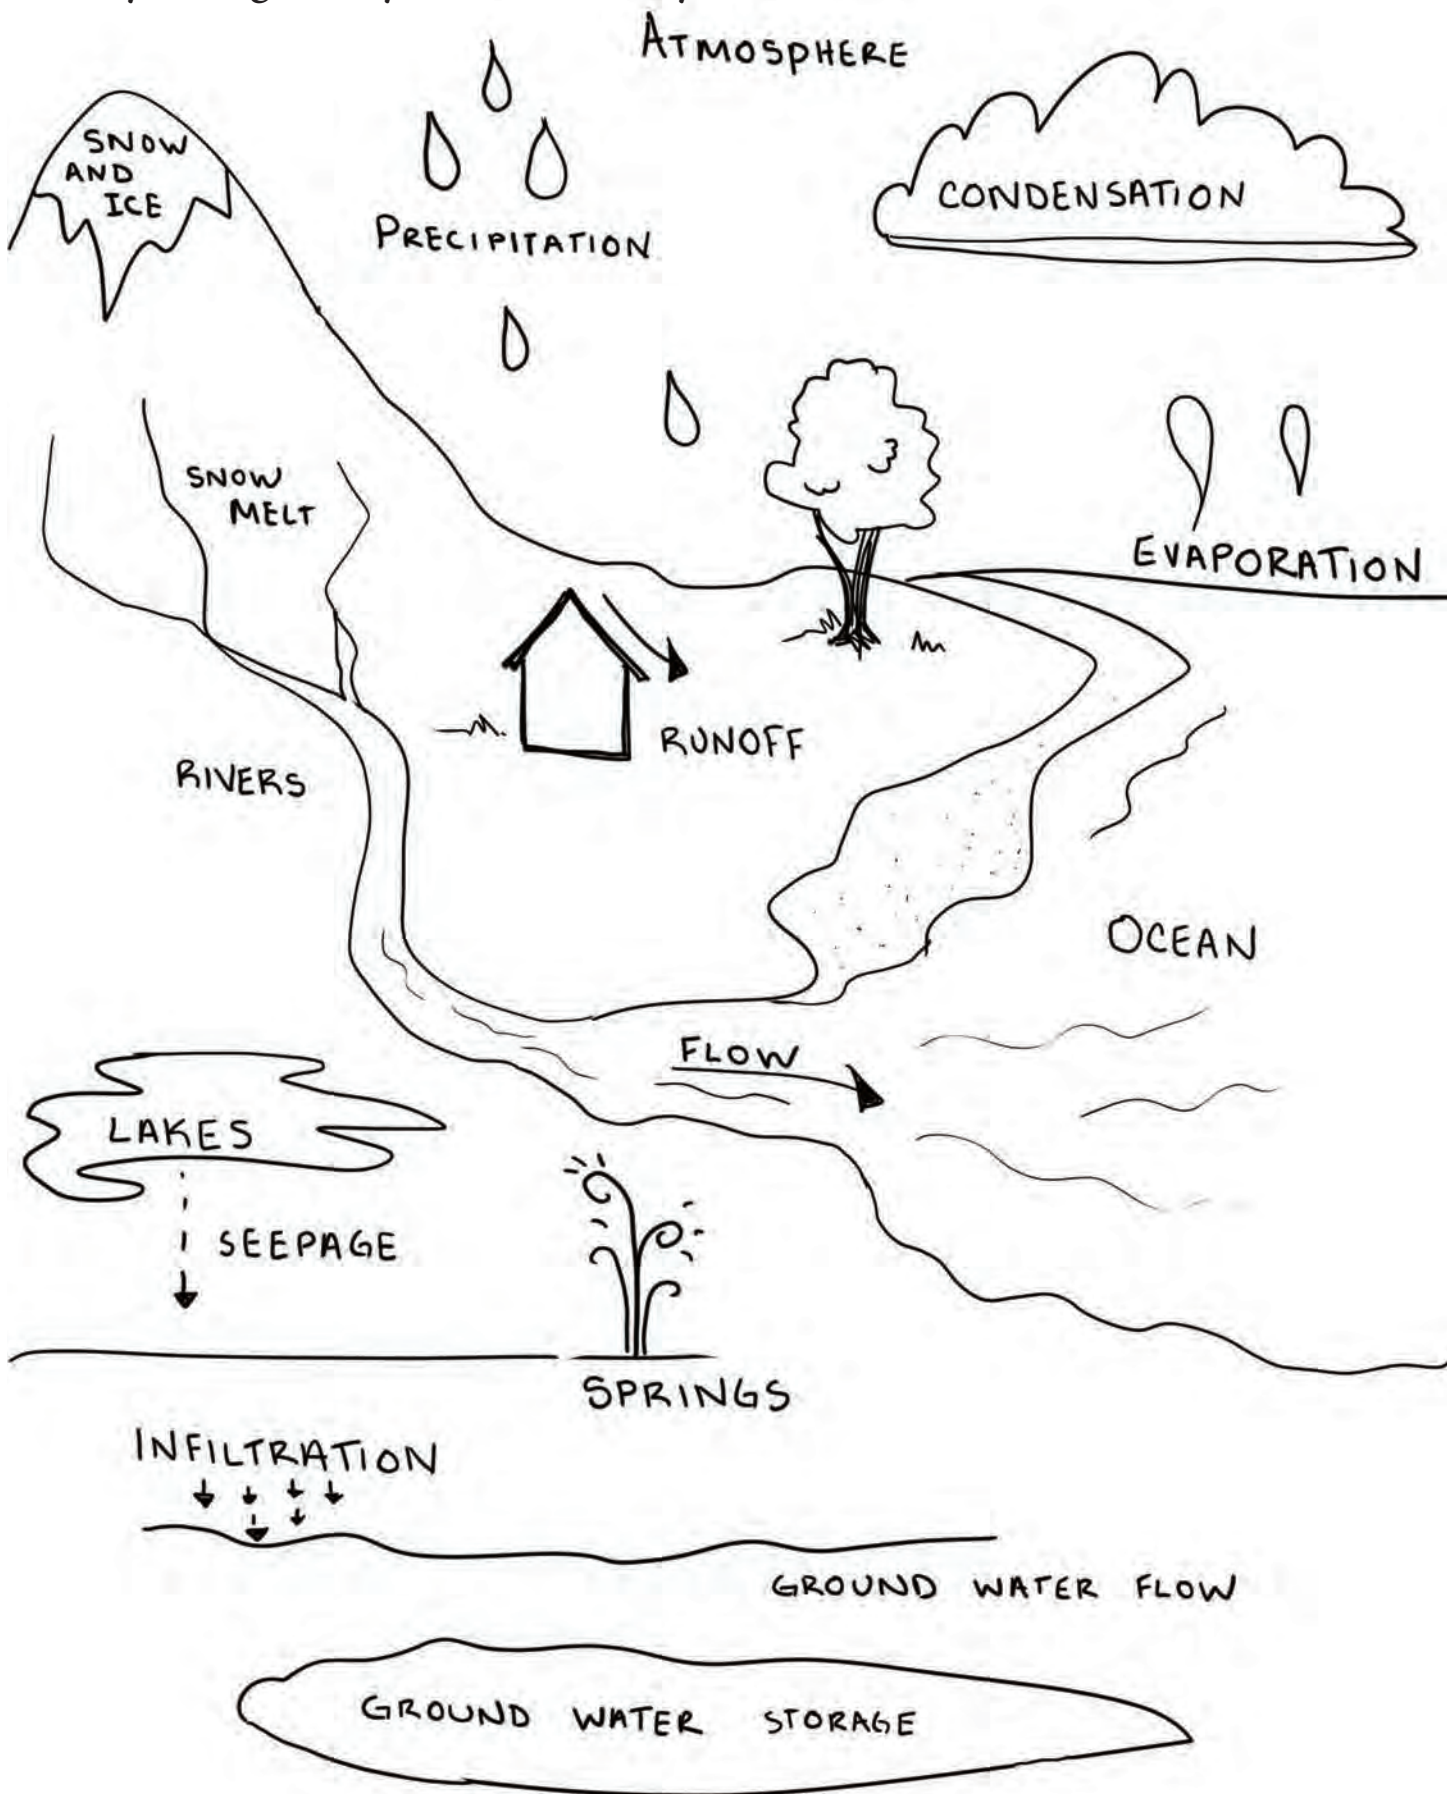 ATMOSPHERE
SNOW
AND
ICE
PRECIPITATION
CONDENSATION
SNOW
MELT
EVAPORATION
RUNOFF
RIVERS
OCEAN
FLOW
LAKES
SEEPAGE
SPRINGS
INFILTRATION
GROUND WATER FLOW
GROUND WATER STORAGE